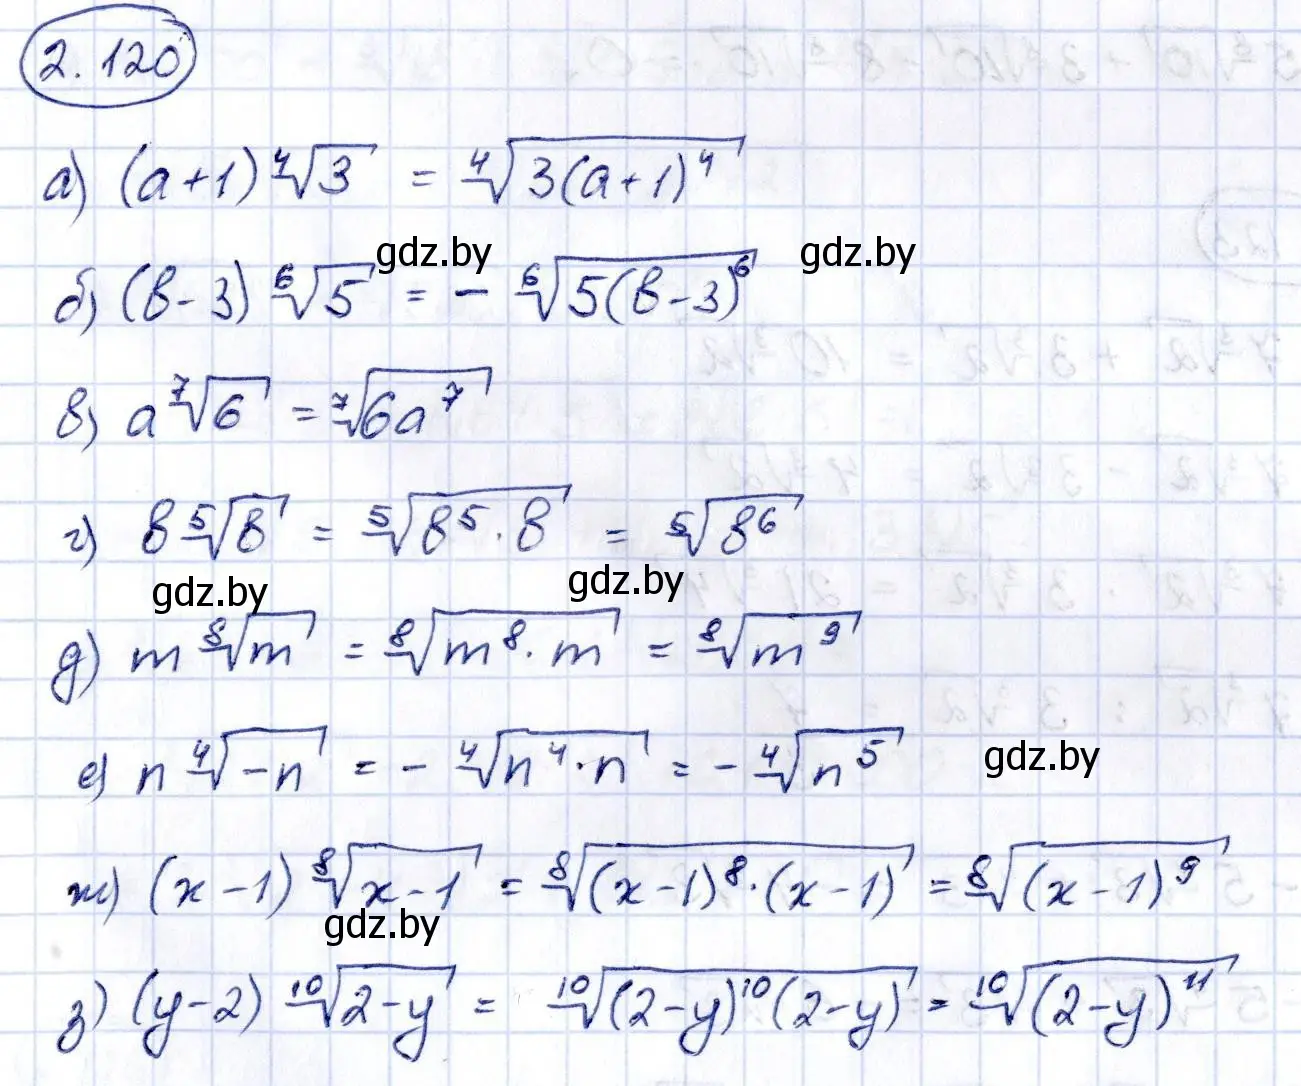 2.120
а) (a+1) ⁴√3 = ⁴√(3(a+1)⁴)
gdz.by gdz.by
б) (b-3) ⁶√5 = - ⁶√(5(b-3)⁶)
в) a ⁷√6 = ⁷√(6a⁷)
г) b ⁵√b = ⁵√(b⁵·b) = ⁵√(b⁶)
gdz.by gdz.by
д) m ⁸√m = ⁸√(m⁸·m) = ⁸√(m⁹)
е) n ⁴√(-n) = - ⁴√(n⁴·n) = - ⁴√(n⁵) gdz.by
ж) (x-1) ⁸√(x-1) = ⁸√((x-1)⁸·(x-1)) = ⁸√((x-1)⁹)
gdz.by
з) (y-2) ¹⁰√(2-y) = ¹⁰√((2-y)¹⁰(2-y)) = ¹⁰√((2-y)¹¹)